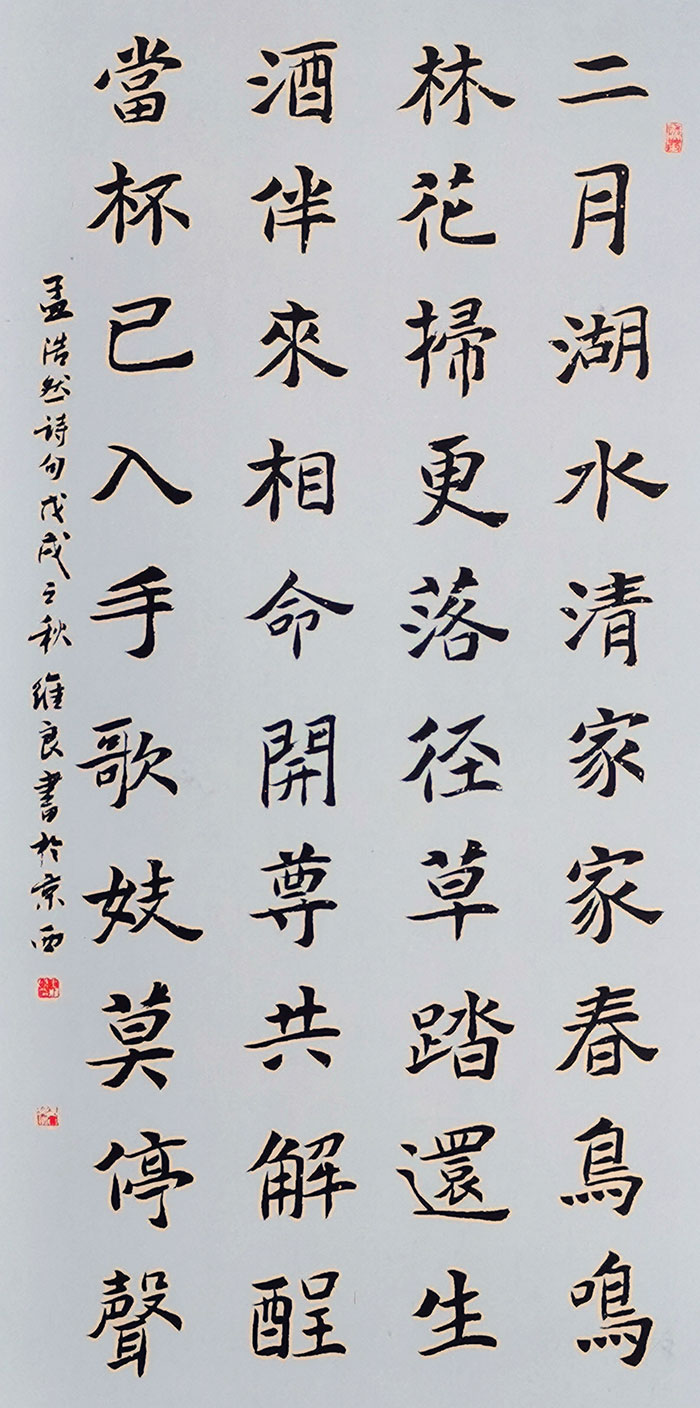 二月湖水清家家春鳥鳴
林花掃更落径草踏還生
酒伴來相命開尊共解酲
當杯已入手歌妓莫停聲
孟浩然詩句戊戌之秋維良書於京西